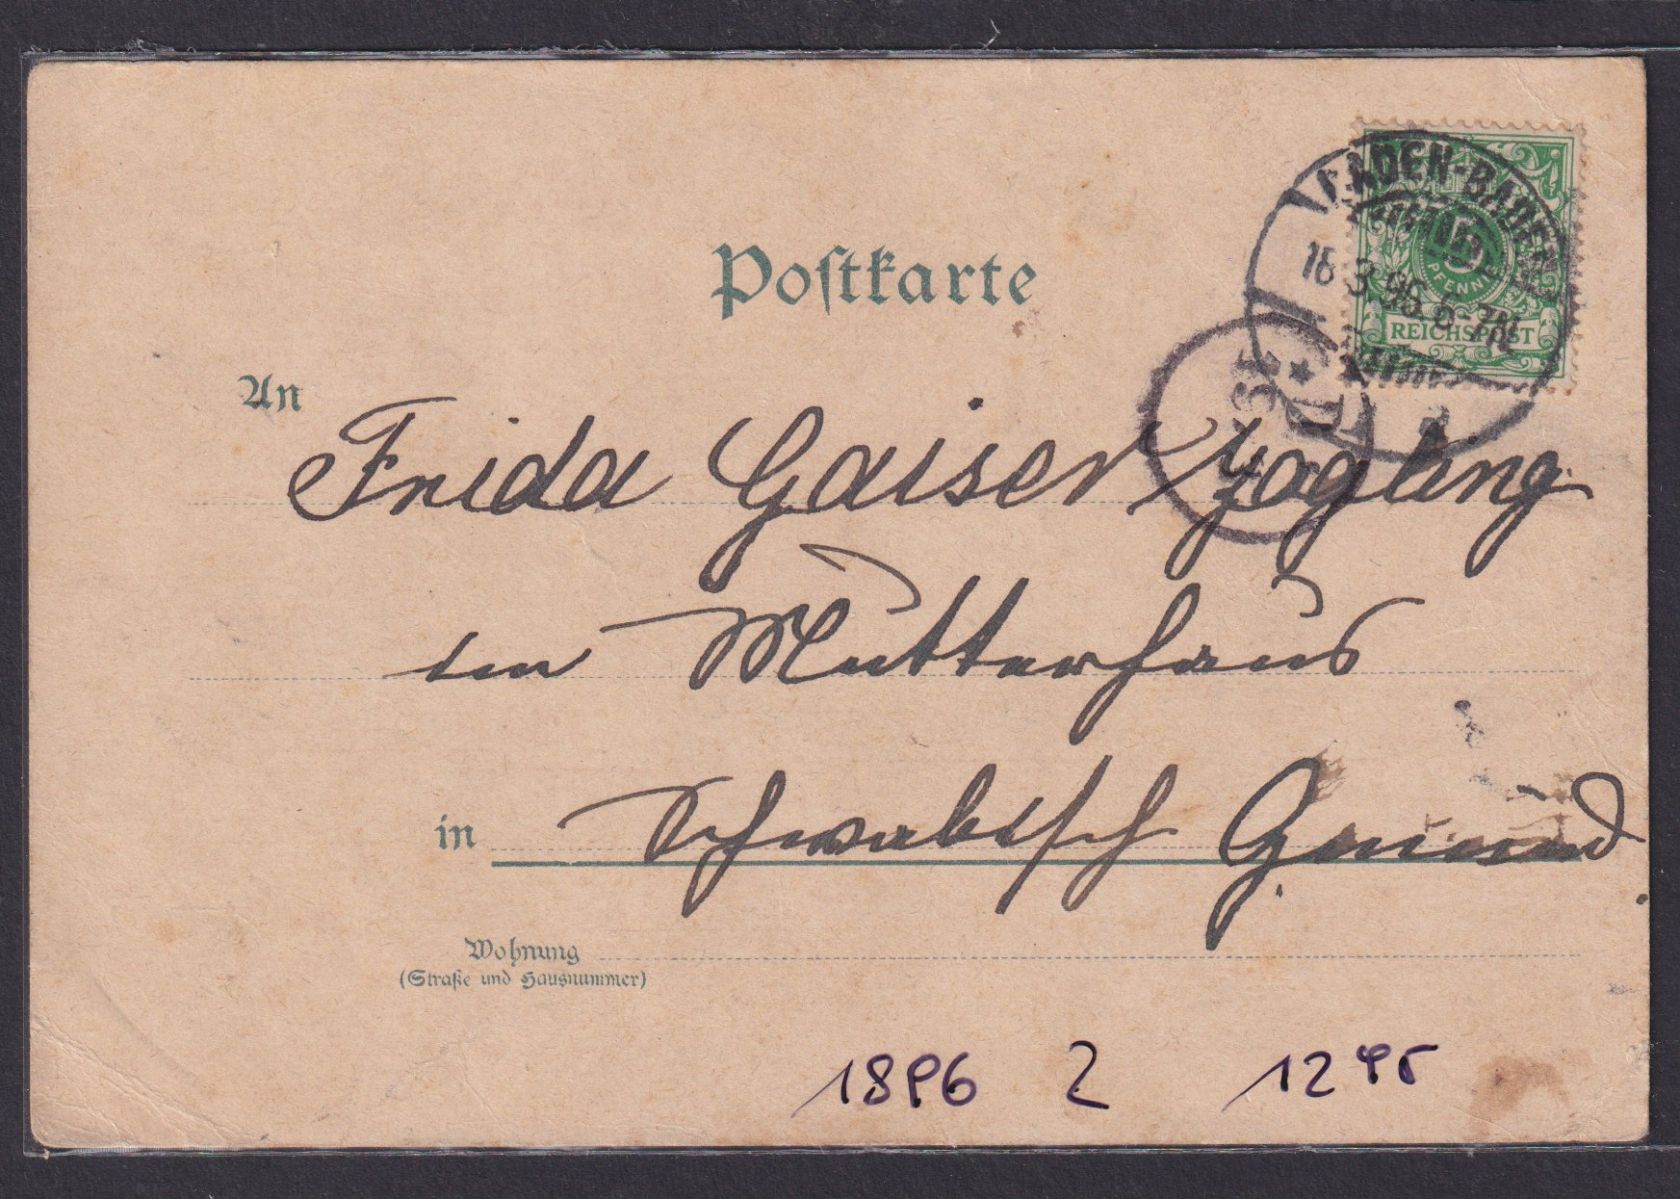 Postkarte
BADEN-BADEN
18.3.96.6-7N.
5
PFENNIG
REICHSPOST
An
Frida Gaiser Zögling
im Mutterhaus
in Schwäbisch Gmünd
Wohnung
(Straße und Hausnummer)
1896 2 12 95